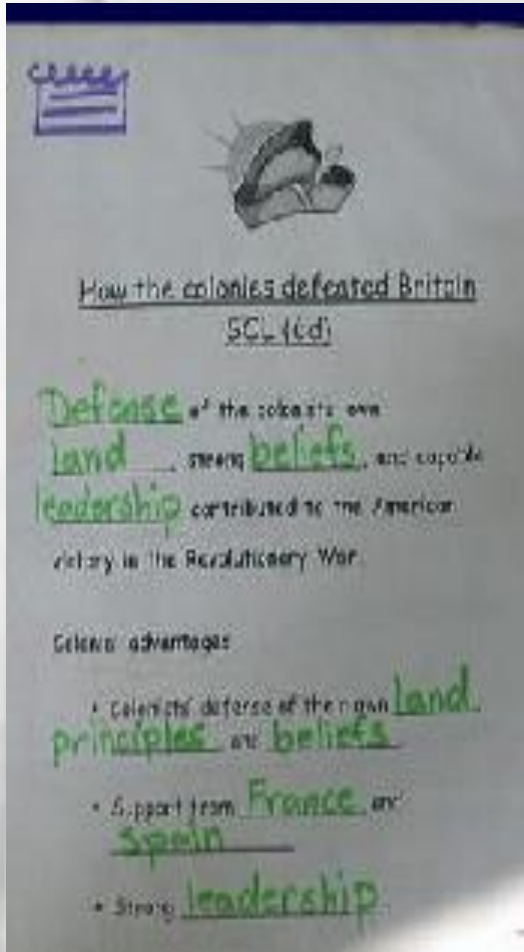 How the colonies defeated Britain
Defense of the colonists own
land, strong beliefs, and capable
leadership contributed to the American
victory in the Revolutionary War.
Colonial advantages
• Colonists' defense of their own land
principles and beliefs
• Support from France and
Spain
• Strong leadership